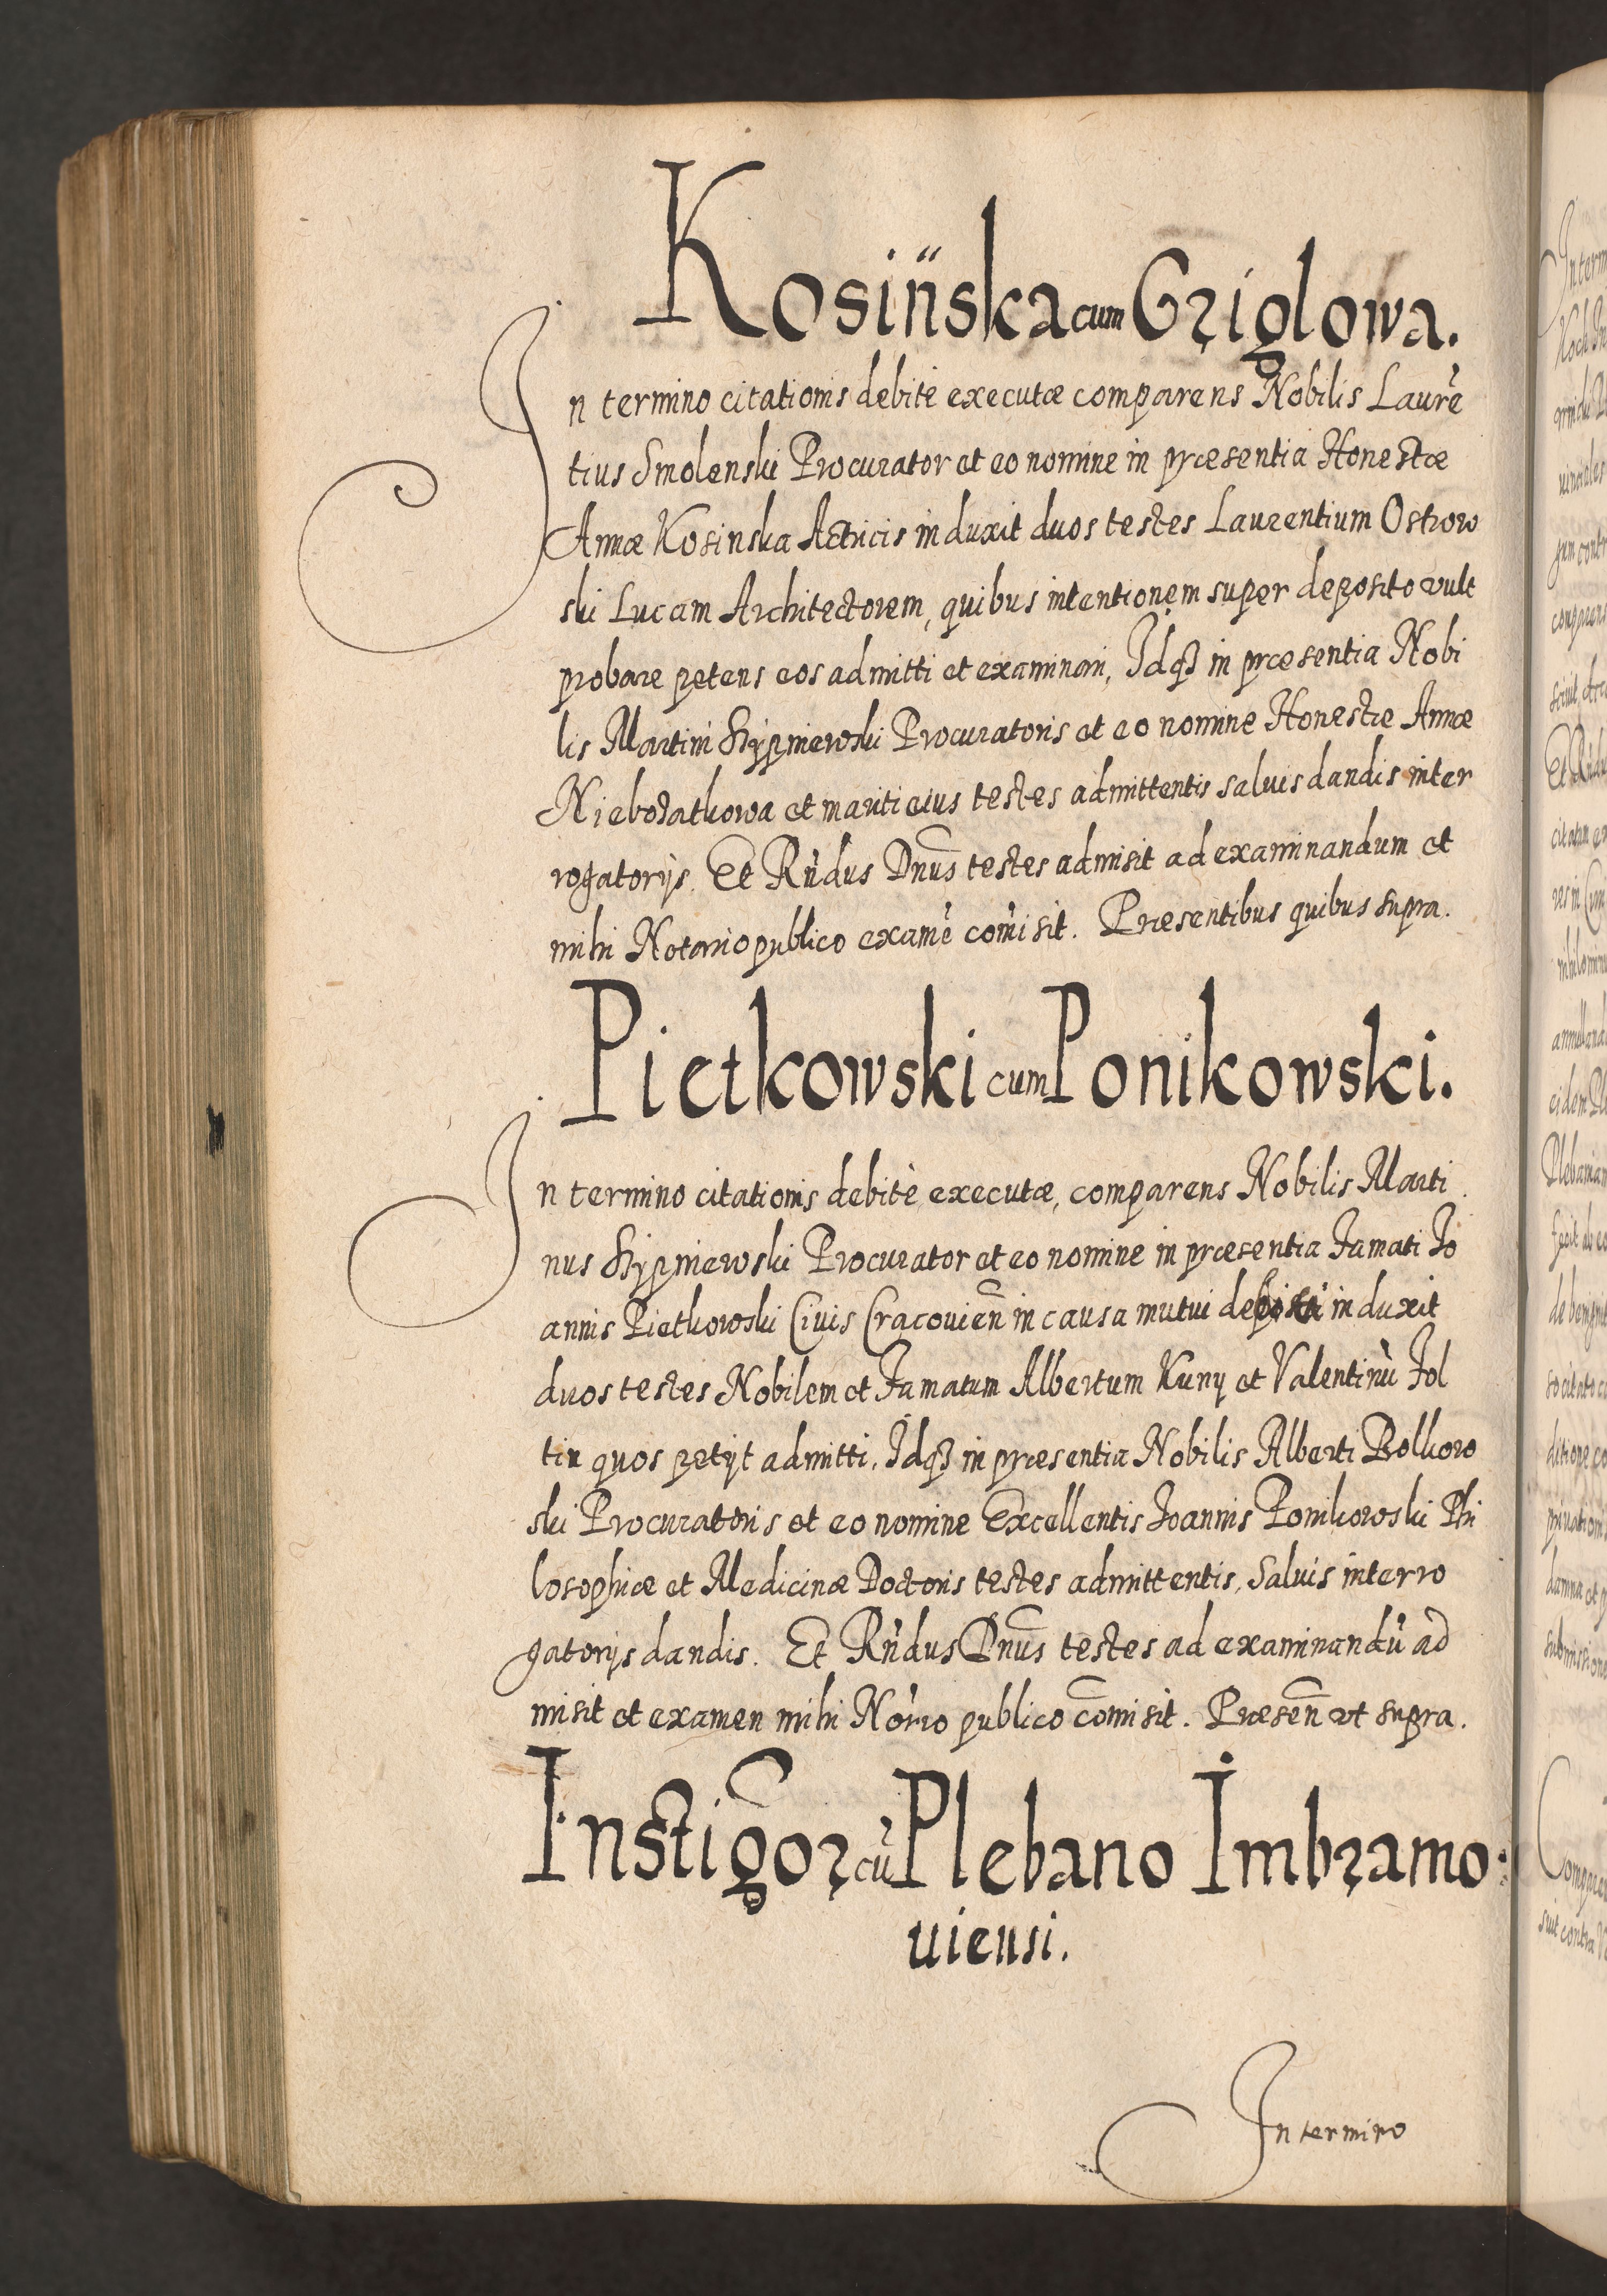 Kosińska cum Griglowa.
In termino citationis debitè executæ comparens Nobilis Laurē
tius Smolenski Procurator et eo nomine in præsentia Honestæ
Annæ Kosinska Actricis induxit duos testes Laurentium Ostrow
ski Lucam Architectorem, quibus intentionem super deposito vult
probare petens eos admitti et examinari, Idq3 in præsentia Nobi
lis Martini Procuratoris et eo nomine Honestæ Annæ
et mariti eius testes admittentis saluis dandis inter
rogatorijs. Et Rńdus Dnus testes admisit ad examinandum et
mihi Notario publico examē com̄isit. Præsentibus quibus supra.
Pietkowski cum Ponikowski.
In termino citationis debitè executæ, comparens Nobilis Marti
nus Procurator et eo nomine in præsentia Famati Jo
annis Pietkowski Ciuis Cracouień in causa mutui induxit
duos testes Nobilem et Famatum Albertum Kuny et Valentinū Fol
tin quos petijt admitti. Idq3 in præsentia Nobilis Alberti Bolkow
ski Procuratoris et eo nomine Excellentis Joannis Ponikowski Phi
losophiæ et Medicinæ Doctoris testes admittentis, Saluis interro
gatorijs dandis. Et Rńdus Dnus testes ad examinandū ad
misit et examen mihi Nor̄io publico com̄isit. Præseñ vt supra.
Instigõr cū Plebano Imbramo:
uiensi.
In termino